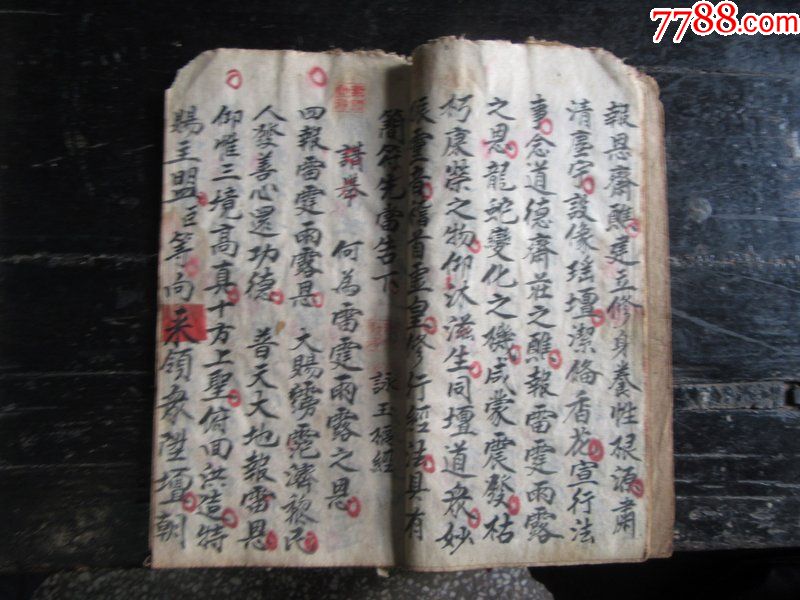 7788.com
報恩齋醮建立修身養性根源肅
清壇宇設像瑶壇潔俻香花宣行法
事念道德齋莊之醮報雷霆雨露
之恩龍蛇變化之機咸蒙震發枯
朽康榮之物仰沐滋生同壇道衆妙
振靈音信首靈皇修行經法具有
簡谷先當告下 詠玉樞經
請舉 何為雷霆雨露之恩
四報雷霆雨露恩 大賜霶霑濟黎民
人發善心還功德 普天大地報雷恩
仰惟三境高真十方上聖俯回洪造特
賜主盟臣等向来領衆陞壇朝